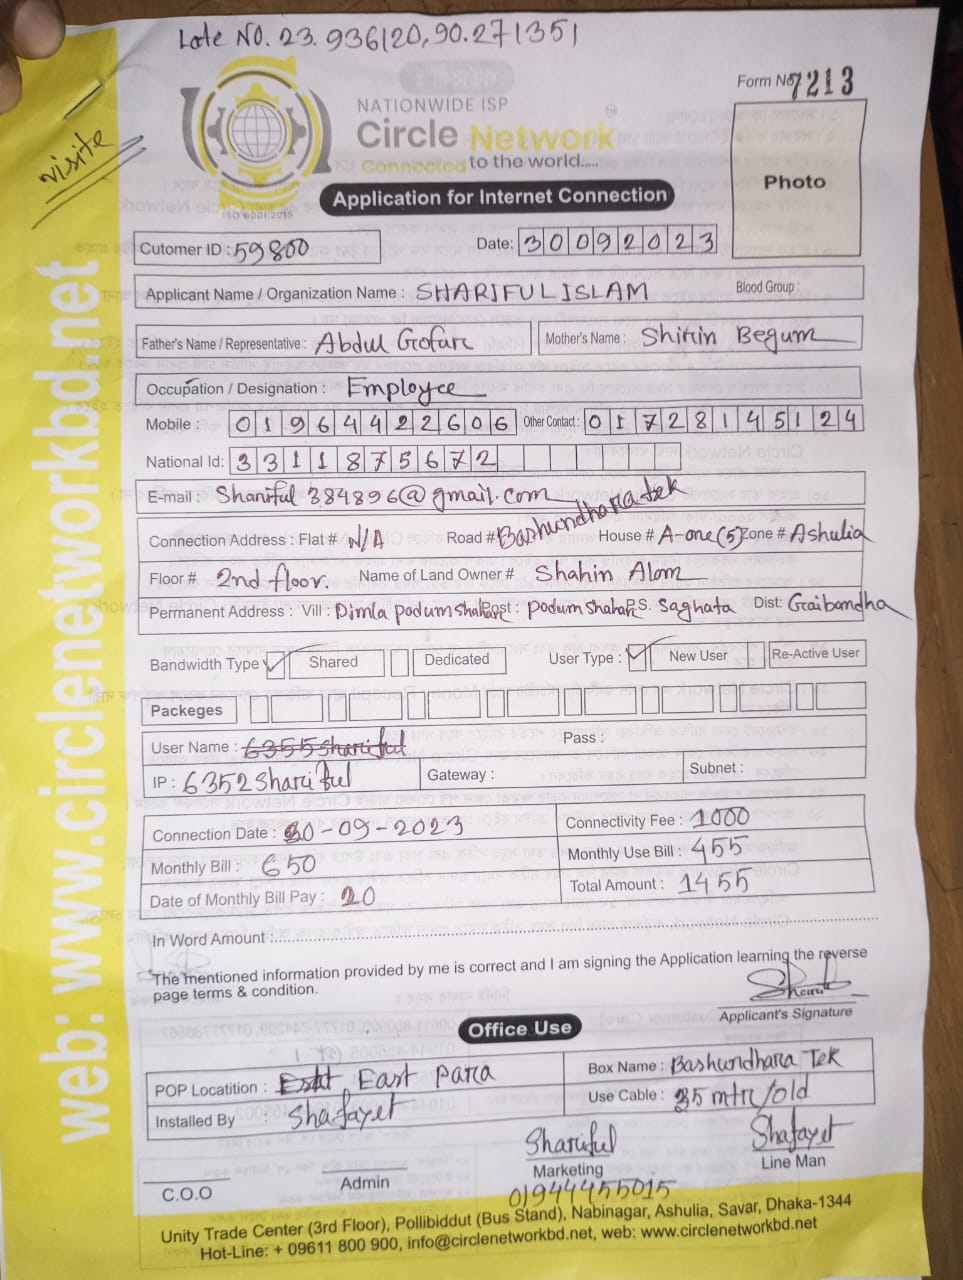 Late NO. 23.936120,90.271351
Form No 7213
NATIONWIDE ISP
Circle Network
Connected to the world.....
visite
Photo
ISO 9001:2015
Application for Internet Connection
Cutomer ID : 59800 Date: 30092023
Applicant Name / Organization Name : SHARIFUL ISLAM Blood Group :
Father's Name / Representative : Abdul Gofur Mother's Name : Shirin Begum
Occupation / Designation : Employee
Mobile : 01964422606 Other Contact : 01728145124
National Id: 3311875672
E-mail : Shariful384896@gmail.com
Connection Address : Flat # N/A Road # Bashundhara tek House # A-one(5) Zone # Ashulia
Floor # 2nd floor. Name of Land Owner # Shahin Alom
Permanent Address : Vill : Dimla padumshahar Post : padumshahar P.S. Saghata Dist: Gaibandha
Bandwidth Type Shared Dedicated User Type : New User Re-Active User
Packeges
User Name : 6355shariful Pass :
IP : 6352shariful Gateway : Subnet :
Connection Date : 30-09-2023 Connectivity Fee : 1000
Monthly Bill : 650 Monthly Use Bill : 455
Date of Monthly Bill Pay : 20 Total Amount : 1455
In Word Amount :
The mentioned information provided by me is correct and I am signing the Application learning the reverse
page terms & condition.
Applicant's Signature
Office Use
POP Locatition : East Para Box Name : Bashundhara Tek
Installed By : Shafayet Use Cable : 35 mtr/old
Shariful Shafayet
C.O.O Admin Marketing Line Man
01944455015
Unity Trade Center (3rd Floor), Pollibiddut (Bus Stand), Nabinagar, Ashulia, Savar, Dhaka-1344
Hot-Line: + 09611 800 900, info@circlenetworkbd.net, web: www.circlenetworkbd.net
web: www.circlenetworkbd.net